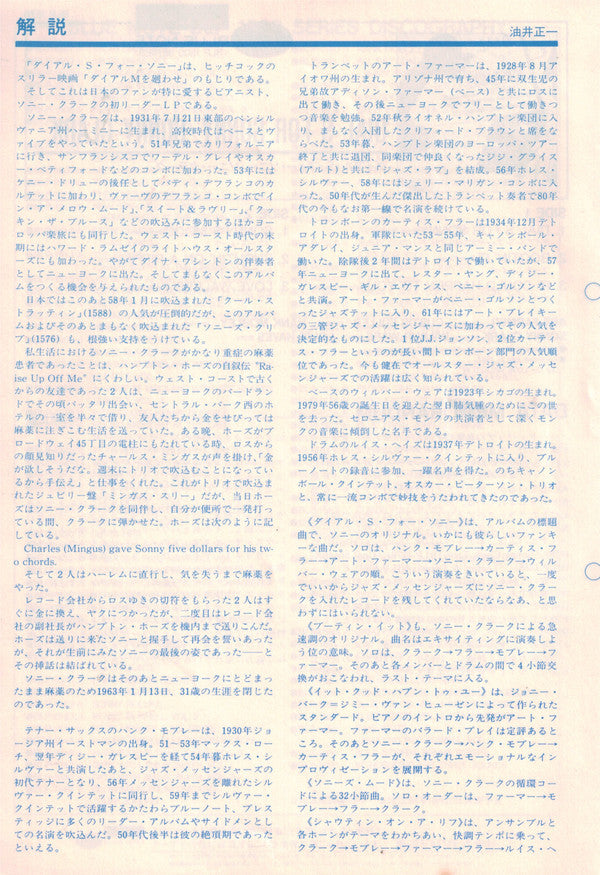 解説
油井正一
「ダイアル・S・フォー・ソニー」は、ヒッチコックの
スリラー映画「ダイアルMを廻わせ」のもじりである。
そしてこれは日本のファンが特に愛するピアニスト、
ソニー・クラークの初リーダーLPである。
ソニー・クラークは、1931年7月21日東部のペンシル
ヴァニア州ハーミニーに生まれ、高校時代はベースとヴ
ァイブをやっていたという。51年兄弟でカリフォルニア
に行き、サンフランシスコでワーデル・グレイやオスカ
ー・ペティフォードなどのコンボに加わった。53年には
ケニー・ドリューの後任としてバディ・デフランコのカ
ルテットに加わり、ヴァーヴのデフランコ・コンボで「イ
ン・ア・メロウ・ムード」、「スイート&ラヴリー」、「クッ
キン・ザ・ブルース」などの吹込みに参加するほかヨー
ロッパ楽旅にも同行した。ウェスト・コースト時代の末
期にはハワード・ラムゼイのライトハウス・オールスタ
ーズにも加わった。やがてダイナ・ワシントンの伴奏者
としてニューヨークに出た。そしてまもなくこのアルバ
ムをつくる機会を与えられたものである。
日本ではこのあと58年1月に吹込まれた「クール・ス
トラッティン」(1588)の人気が圧倒的だが、このアルバ
ムおよびそのあとまもなく吹込まれた「ソニーズ・クリ
ブ」(1576)も、根強い支持をうけている。
私生活におけるソニー・クラークがかなり重症の麻薬
患者であったことは、ハンプトン・ホーズの自叙伝 "Ra-
ise Up Off Me" にくわしい。ウェスト・コーストで古く
からの友達であった2人は、ニューヨークのバードラン
ドでその頃バッタリ出会い、セントラル・パーク西のホ
テルの一室を半々で借り、友人たちから金をせびっては
麻薬に注ぎこむ生活を送っていた。ある晩、ホーズがブ
ロードウェイ45丁目の電柱にもたれている時、ロスから
の顔見知りだったチャールス・ミンガスが声を掛け、「金
が欲しそうだな。週末にトリオで吹込むことになってい
るから手伝え」と仕事をくれた。これがトリオで吹込ま
れたジュビリー盤「ミンガス・スリー」だが、当日ホー
ズはソニー・クラークを同伴し、自分が便所で一発打っ
ている間、クラークに弾かせた。ホーズは次のように記
している。
Charles (Mingus) gave Sonny five dollars for his tw-
o chords.
そして2人はハーレムに直行し、気を失うまで麻薬を
やった。
レコード会社からロスゆきの切符をもらった2人はす
ぐに金に換え、ヤクにつかったが、二度目はレコード会
社の副社長がハンプトン・ホーズを機内まで送りこんだ。
ホーズは送りに来たソニーと握手して再会を誓いあった
が、それが生前にみたソニーの最後の姿であった——と
その挿話は結ばれている。
ソニー・クラークはそのあとニューヨークにとどまっ
たまま麻薬のため1963年1月13日、31歳の生涯を閉じた
のであった。
テナー・サックスのハンク・モブレーは、1930年ジョ
ージア州イーストマンの出身。51〜53年マックス・ロー
チ、翌年ディジー・ガレスピーを経て54年暮ホレス・シ
ルヴァーと共演したあと、ジャズ・メッセンジャーズの
初代テナーとなり、56年メッセンジャーズを離れたシル
ヴァー・クインテットに同行し、59年までシルヴァー・
クインテットで活躍するかたわらブルーノート、プレス
ティッジに多くのリーダー・アルバムやサイドメンとし
ての名演を吹込んだ。50年代後半は彼の絶頂期であった
といえる。
トランペットのアート・ファーマーは、1928年8月ア
イオワ州の生まれ。アリゾナ州で育ち、45年に双生児の
兄弟故アディソン・ファーマー(ベース)と共にロスに
出て働き、その後ニューヨークでフリーとして働きつつ
つ音楽を勉強。52年秋ライオネル・ハンプトン楽団に入
り、まもなく入団したクリフォード・ブラウンと席をな
らべた。53年暮、ハンプトン楽団のヨーロッパ・ツアー
終了と共に退団、同楽団で仲良くなったジジ・グライス
(アルト)と共に「ジャズ・ラブ」を結成。56年ホレス・
シルヴァー、58年にはジェリー・マリガン・コンボに入
った。50年代が生んだ傑出したトランペット奏者で80年
代の今もなお第一線で名演を続けている。
トロンボーンのカーティス・フラーは1934年12月デト
ロイトの出身。軍隊にいた53〜55年、キャノンボール・
アダレイ、ジュニア・マンスと同じアーミー・バンドで
働いた。除隊後2年間はデトロイトで働いていたが、57
年ニューヨークに出て、レスター・ヤング、ディジー・
ガレスピー、ギル・エヴァンス、ベニー・ゴルソンなど
と共演。アート・ファーマーがベニー・ゴルソンとつく
ったジャズテットに入り、61年にはアート・ブレイキー
の三管ジャズ・メッセンジャーズに加わってその人気を
決定的なものにした。1位J.J.ジョンソン、2位カーティ
ス・フラーというのが長い間トロンボーン部門の人気順
位であった。今も健在でオールスター・ジャズ・メッセ
ンジャーズでの活躍は広く知られている。
ベースのウィルバー・ウェアは1923年シカゴの生まれ。
1979年56歳の誕生日を迎えた翌日肺気腫のためにこの世
を去った。セロニアス・モンクの共演者として深くモン
クの音楽に傾倒した名手である。
ドラムのルイス・ヘイズは1937年デトロイトの生まれ。
1956年ホレス・シルヴァー・クインテットに入り、ブル
ーノートの録音に参加、一躍名声を得た。のちキャノン
ボール・クインテット、オスカー・ピーターソン・トリオ
と、常に一流コンボで妙技をうたわれてきたのであった。
《ダイアル・S・フォー・ソニー》は、アルバムの標題
曲で、ソニーのオリジナル。いかにも彼らしいファンキ
ーな曲だ。ソロは、ハンク・モブレー→カーティス・フ
ラー→アート・ファーマー→ソニー・クラーク→ウィル
バー・ウェアの順。こういう演奏をきいていると、一度
でいいからジャズ・メッセンジャーズにソニー・クラー
クを入れたレコードを残してくれていたならなあ、と思
わずにはいられない。
《ブーティン・イット》も、ソニー・クラークによる急
速調のオリジナル。曲名はエキサイティングに演奏しよ
う位の意味。ソロは、クラーク→フラー→モブレー→フ
ァーマー。そのあと各メンバーとドラムの間で4小節交
換がおこなわれ、ラスト・テーマに入る。
《イット・クッド・ハプン・トゥ・ユー》は、ジョニー・
バーク=ジミー・ヴァン・ヒューゼンによって作られた
スタンダード。ピアノのイントロから先発がアート・フ
ァーマー。ファーマーのバラード・プレイは定評あると
ころ。そのあとソニー・クラーク→ハンク・モブレー→
カーティス・フラーが、それぞれエモーショナルなイン
プロヴィゼーションを展開する。
《ソニーズ・ムード》は、ソニー・クラークの循環コー
ドによる32小節曲。ソロ・オーダーは、ファーマー→モ
ブレー→フラー→クラーク。
《シャウティン・オン・ア・リフ》は、アンサンブルと
各ホーンがテーマをわかちあい、快調テンポに乗って、
クラーク→モブレー→ファーマー→フラー→ルイス・ヘ